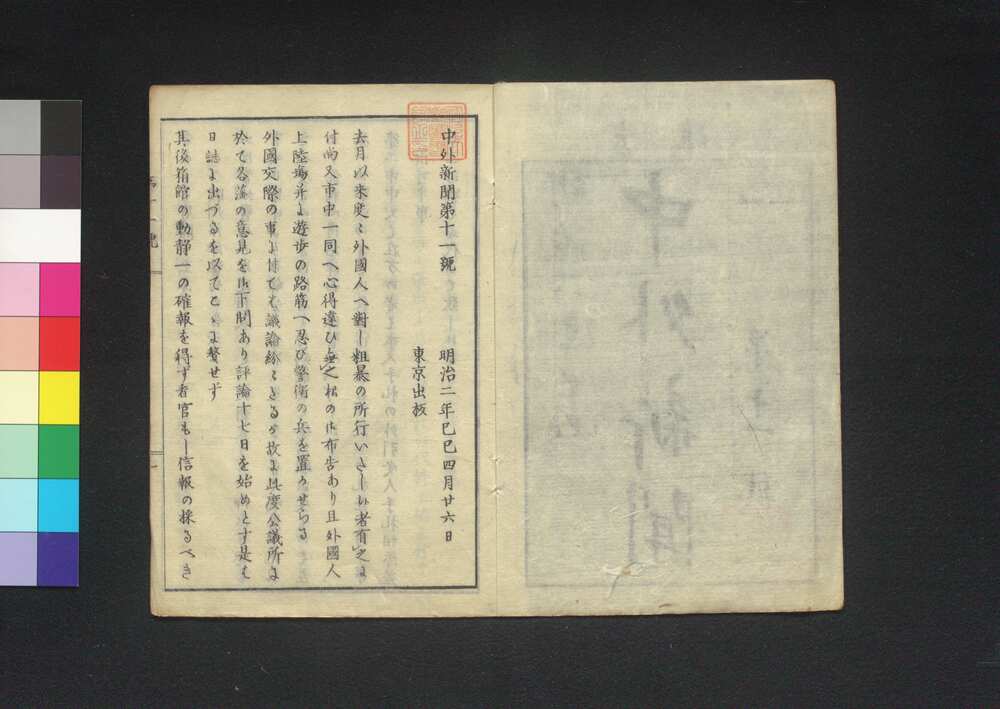 中外新聞第十一號
明治二年己巳四月廿六日
東京出板
去月以来度〻外國人へ對し粗暴の所行いたし候者有之よ
付尚又市中一同へ心得違ひ無之様の御布告あり且外國人
上陸場并よ遊歩の路筋へ忍び警衛の兵を置かせらる
外國交際の事よ付ても議論紛〻たるが故よ此度公議所よ
於て各藩の意見を御下問あり評論十七日を始めとす是も
日誌よ出づるを以てこゝよ贅せず
其後箱館の動静一の確報を得ず看官もし信報の採るべき